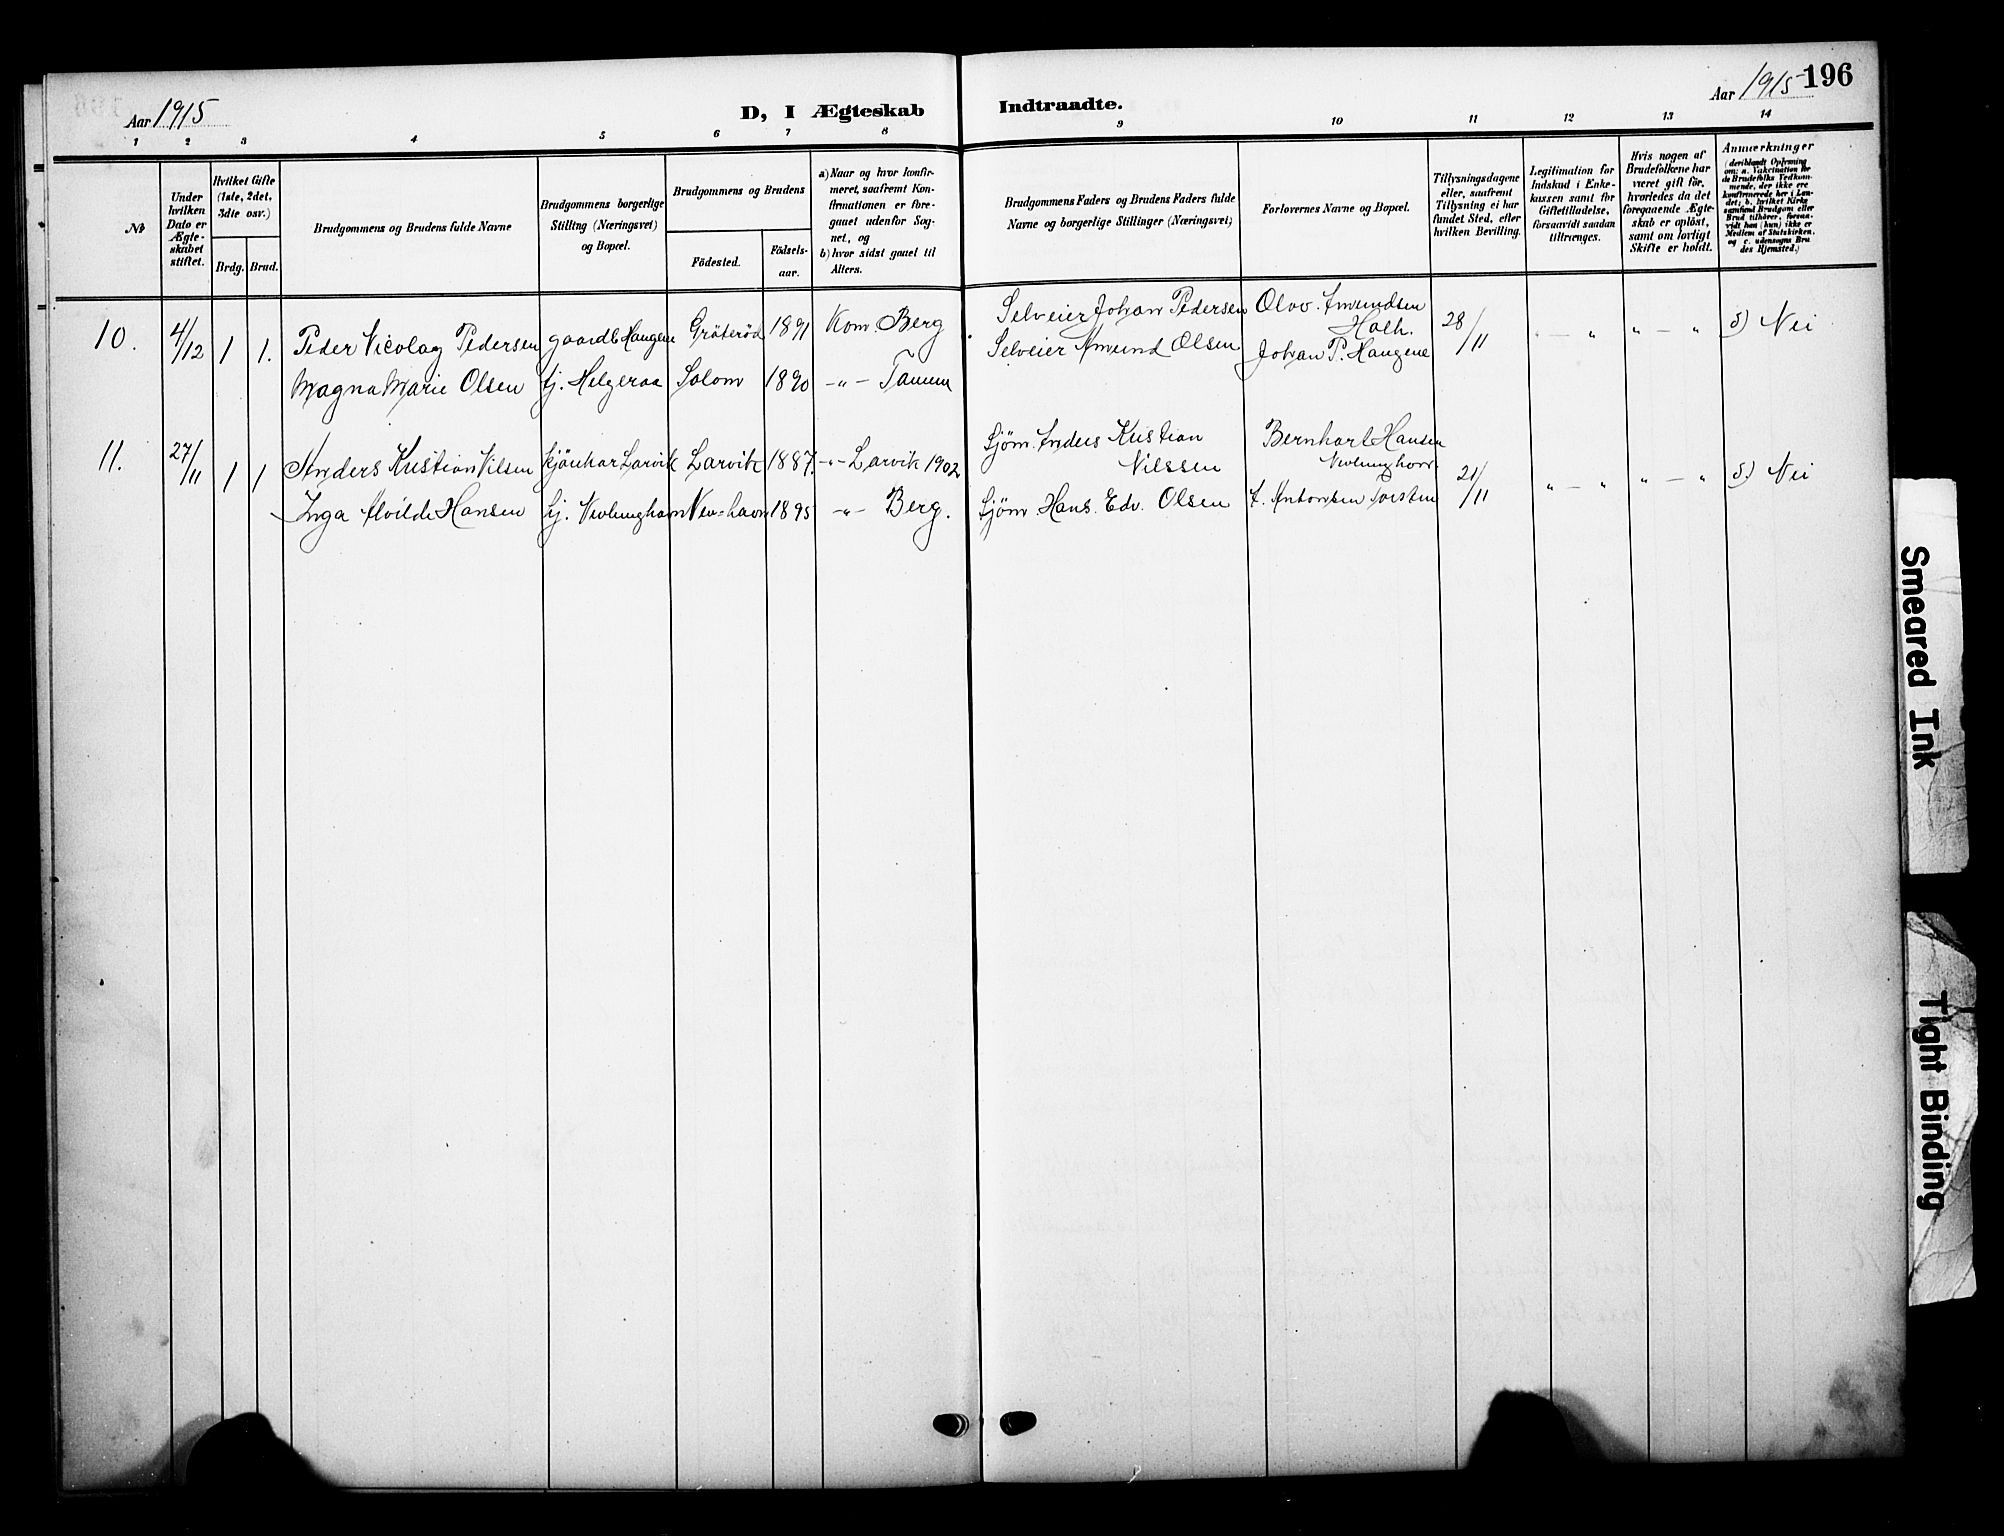 Aar 1915
D, I Ægteskab Indtraadte.
Aar 1915 196
1 2 3 4 5 6 7 8 9 10 11 12 13 14
№
Under hvilken Dato er Ægteskabet stiftet.
Hvilket Gifte (1ste, 2det, 3die osv.)
Brdg. Brud.
Brudgommens og Brudens fulde Navne
Brudgommens borgerlige Stilling (Næringsvei) og Bopæl.
Brudgommens og Brudens
Födested. Födselsaar.
a) Naar og hvor konfirmeret, saafremt Konfirmationen er foregaaet udenfor Sognet, og
b) hvor sidst gaaet til Alters.
Brudgommens Faders og Brudens Faders fulde Navne og borgerlige Stillinger (Næringsvei)
Forlovernes Navne og Bopæl.
Tillysningsdagene eller, saafremt Tillysning ei har fundet Sted, efter hvilken Bevilling.
Legitimation for Indskud i Enkekassen samt for Giftetilladelse, forsaavidt saadan tiltrænges.
Hvis nogen af Brudefolkene har været gift för, hvorledes da det foregaaende Ægteskab er oplöst, samt om lovligt Skifte er holdt.
Anmærkninger
(deriblandt Oplysning om: a. Vakcination for de Brudefolks Vedkommende, der ikke ere konfirmerede her i Landet; b. hvilket Kirkesamfund Brudgom eller Brud tilhörer, forsaavidt han (hun) ikke er Medlem af Statskirken, og c. udensogns Brudes Hjemsted.)
10. 4/12 1 1. Peder Nicolay Pedersen gaardb Haugene Gräteröd 1891 Kom Berg Selveier Johan Pedersen Olav Amundsen Holh. 28/11 " — " " — " δ) Nei
Magna Marie Olsen tj. Helgeraa Solom 1890 —"— Tanum Selveier Amund Olsen Johan P. Haugene
11. 27/11 1 1 Anders Kristian Nilsen Larvik Larvik 1887. —"— Larvik 1902 Sjöm. Anders Kristian Nilssen Bernhart Hansen 21/11 " — " " — " δ.) Nei
Inga Alvilde Hansen tj. Nevlungham Nev=havn 1895 —"— Berg. Sjöm Hans. Edv. Olsen Antonsen
Smeared Ink
Tight Binding